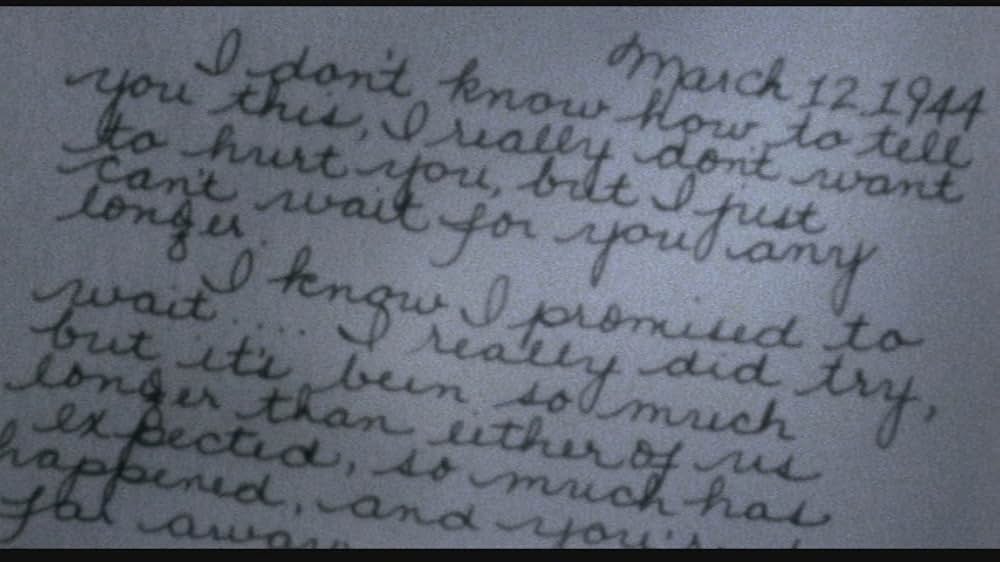 March 12, 1944
I don't know how to tell
you this, I really don't want
to hurt you, but I just
can't wait for you any
longer.
I know I promised to
wait.... I really did try,
but it's been so much
longer than either of us
expected, so much has
happened, and you're
far away